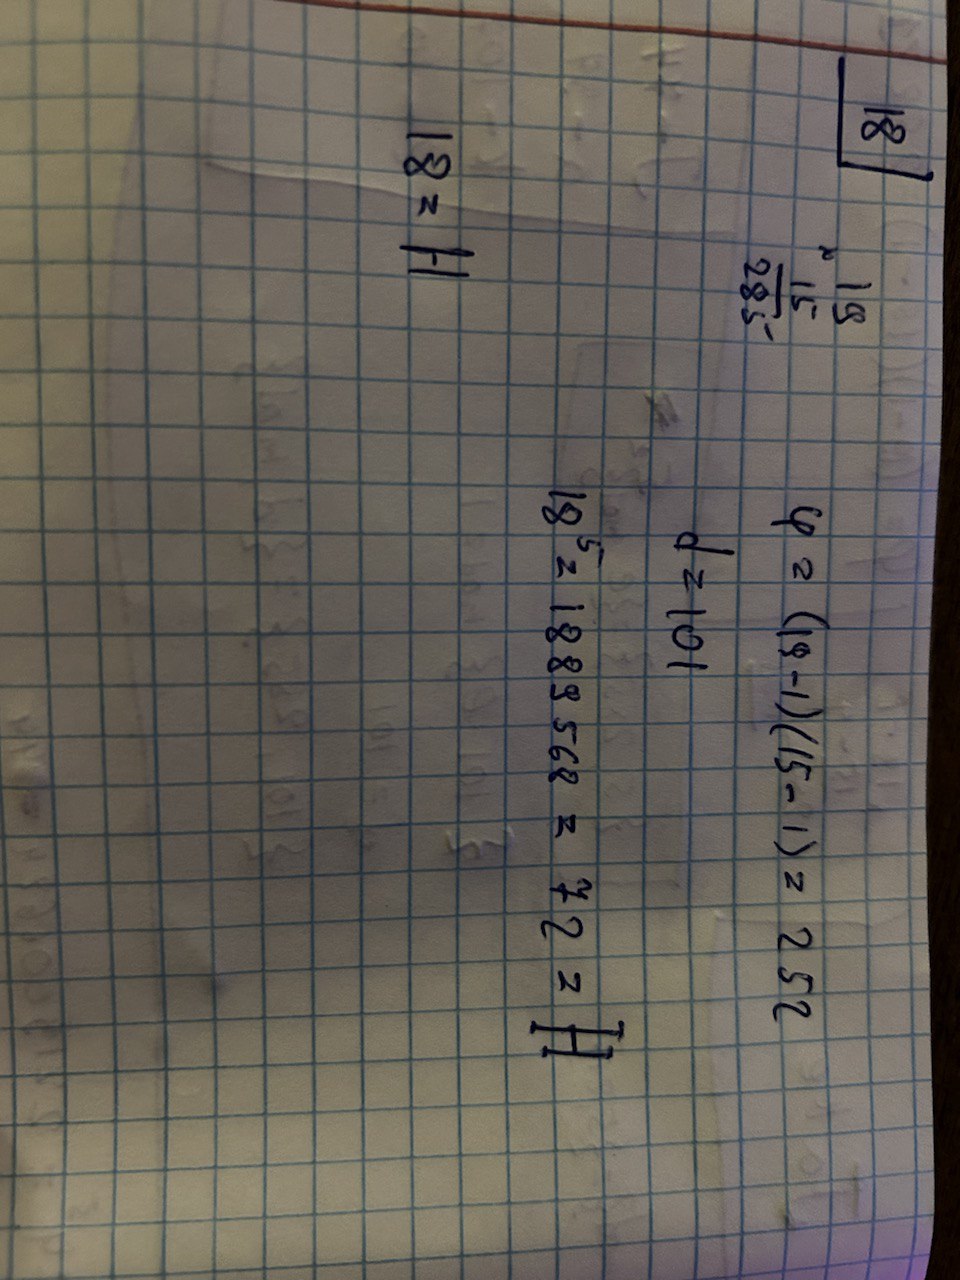 18
× 19
15
285
φ = (19-1)(15-1) = 252
d = 101
18⁵ = 1889568 = 72 = H
18 = H